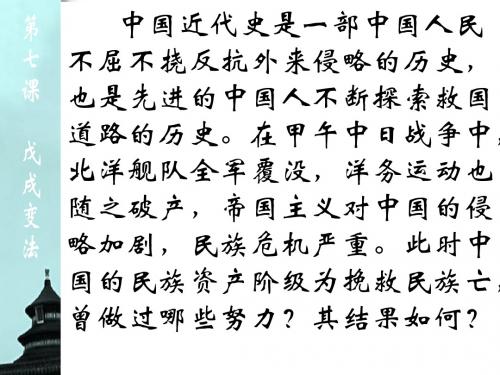 第七课 戊戌变法
中国近代史是一部中国人民
不屈不挠反抗外来侵略的历史，
也是先进的中国人不断探索救国
道路的历史。在甲午中日战争中，
北洋舰队全军覆没，洋务运动也
随之破产，帝国主义对中国的侵
略加剧，民族危机严重。此时中
国的民族资产阶级为挽救民族亡，
曾做过哪些努力？其结果如何？